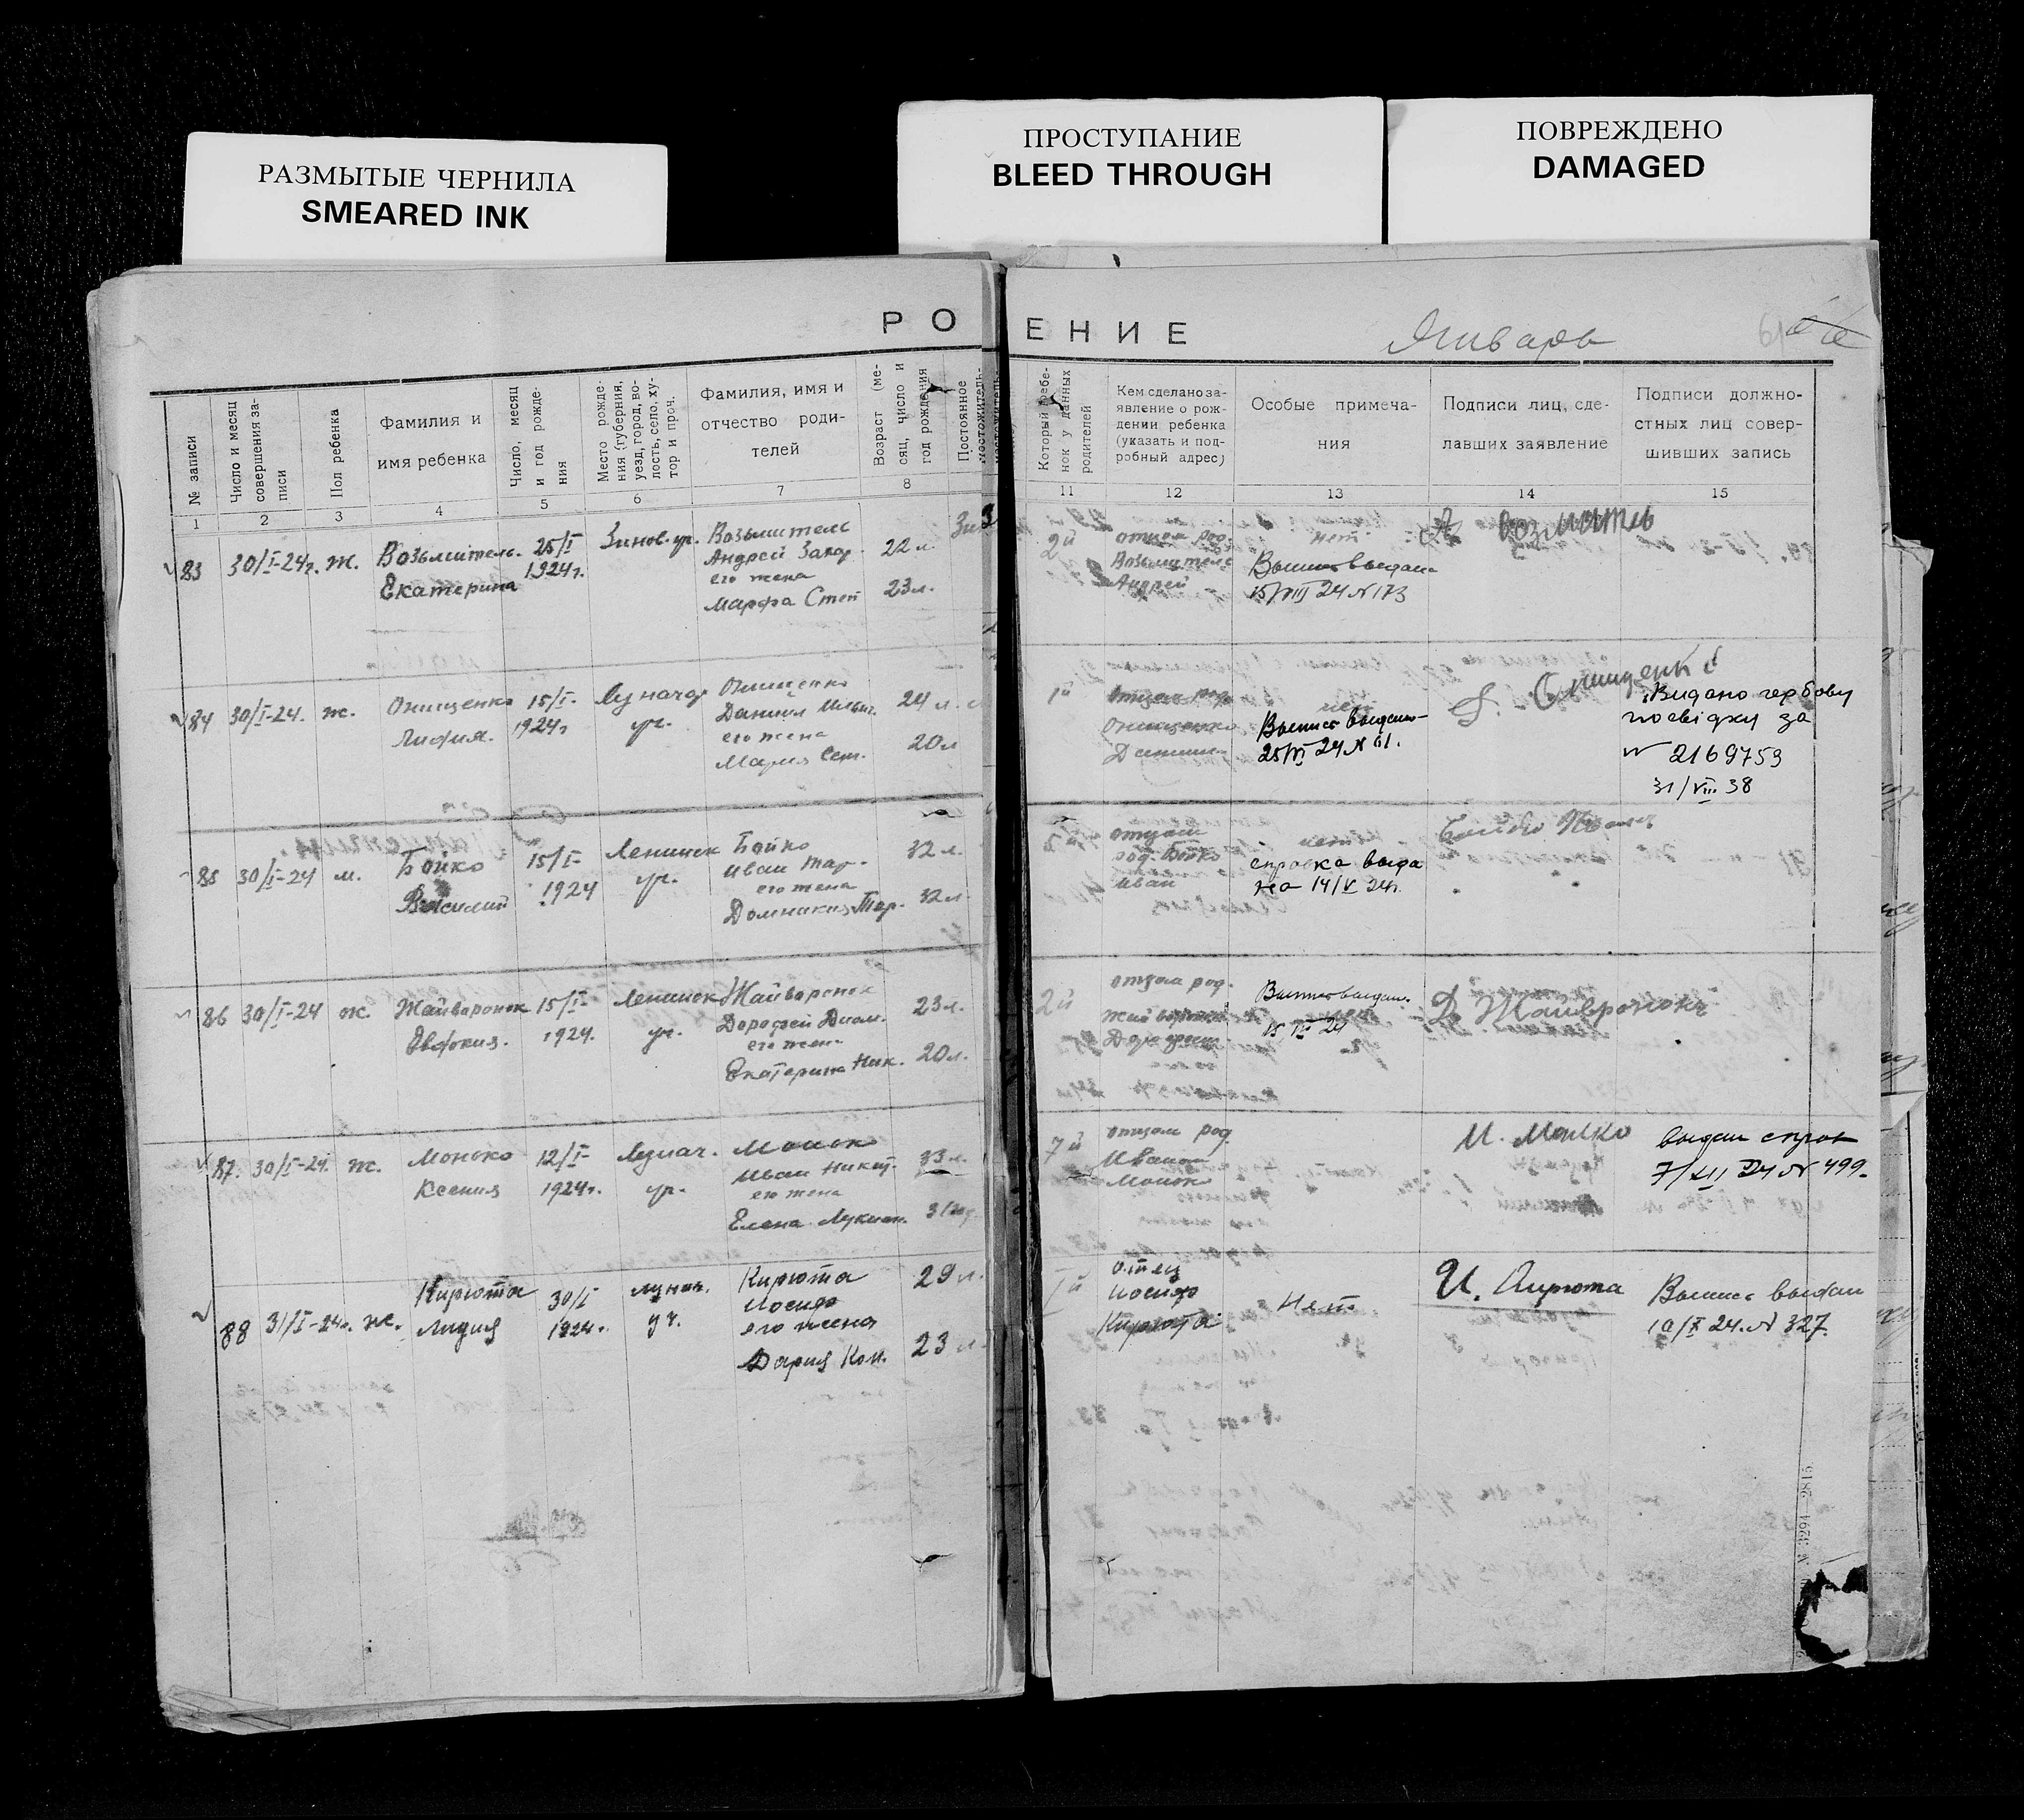 РАЗМЫТЫЕ ЧЕРНИЛА
SMEARED INK
ПРОСТУПАНИЕ
BLEED THROUGH
ПОВРЕЖДЕНО
DAMAGED
РО
ЕНИЕ
Январь
№ записи
Число и месяц
совершения за-
писи
Пол ребенка
Фамилия и
имя ребенка
Число, месяц
и год рожде-
ния
Место рожде-
ния (губерния,
уезд, город, во-
лость, село, ху-
тор и проч.
Фамилия, имя и
отчество роди-
телей
Возраст (ме-
сяц, число и
год рождения
Постоянное
Который ребе-
нок у данных
родителей
Кем сделано за-
явление о рож-
дении ребенка
(указать и под-
робный адрес)
Особые примеча-
ния
Подписи лиц, сде-
лавших заявление
Подписи должно-
стных лиц совер-
шивших запись
1 2 3 4 5 6 7 8
11 12 13 14 15
83 30/I-24г. ж.
Возьмитель
Екатерина
25/I
1924г.
Зинов. уч.
Возьмитель
Андрей Захар.
его жена
Марфа Степ
22 л.
23 л.
2й
отцом род.
Возьмитель
Андрей
нет
15/VIII 24 N 173
А Возмитель
84 30/I-24. ж.
Онищенко
Лидия.
15/I-
1924г
Луначар
уч.
Онищенко
Даниил
его жена
Мария Сем.
24 л.
20 л
1й
отцом род.
Онищенко
25/VI 24 N 61.
Онищенко
Видано гербову
посвідку за
№ 2169753
31/VIII 38
85 30/I-24 м.
Бойко
Василий
15/I-
1924
Ленинск
уч.
Бойко
Иван
его жена
32 л.
32 л.
отцом
род. Бойко
Иван
нет
справка выда
на 14/V 24г.
86 30/I-24 ж.
Жайворонок
Евдокия.
15/I-
1924.
Ленинск
уч.
Жайворонок
Дорофей
его жена
Екатерина Ник.
23 л.
20 л.
2й
отцом род.
15 VIII 24
Д Жайворонокъ
87. 30/I-24. ж.
Моноко
Ксения
12/I-
1924г.
Лунач.
уч.
Иван Никит.
его жена
Елена Лукиан.
33 л.
7й
отцом род
Иваном
7/XII 24 N 499.
88 31/I-24г. ж.
Кирюта
Лидия
30/I
1924г.
лунач.
уч.
Кирюта
Иосиф
его жена
Дария Кон.
29 л.
23 л.
1й
отец
Иосиф
Кирюта
Нет
И. Кирюта
10/X 24. N 327.